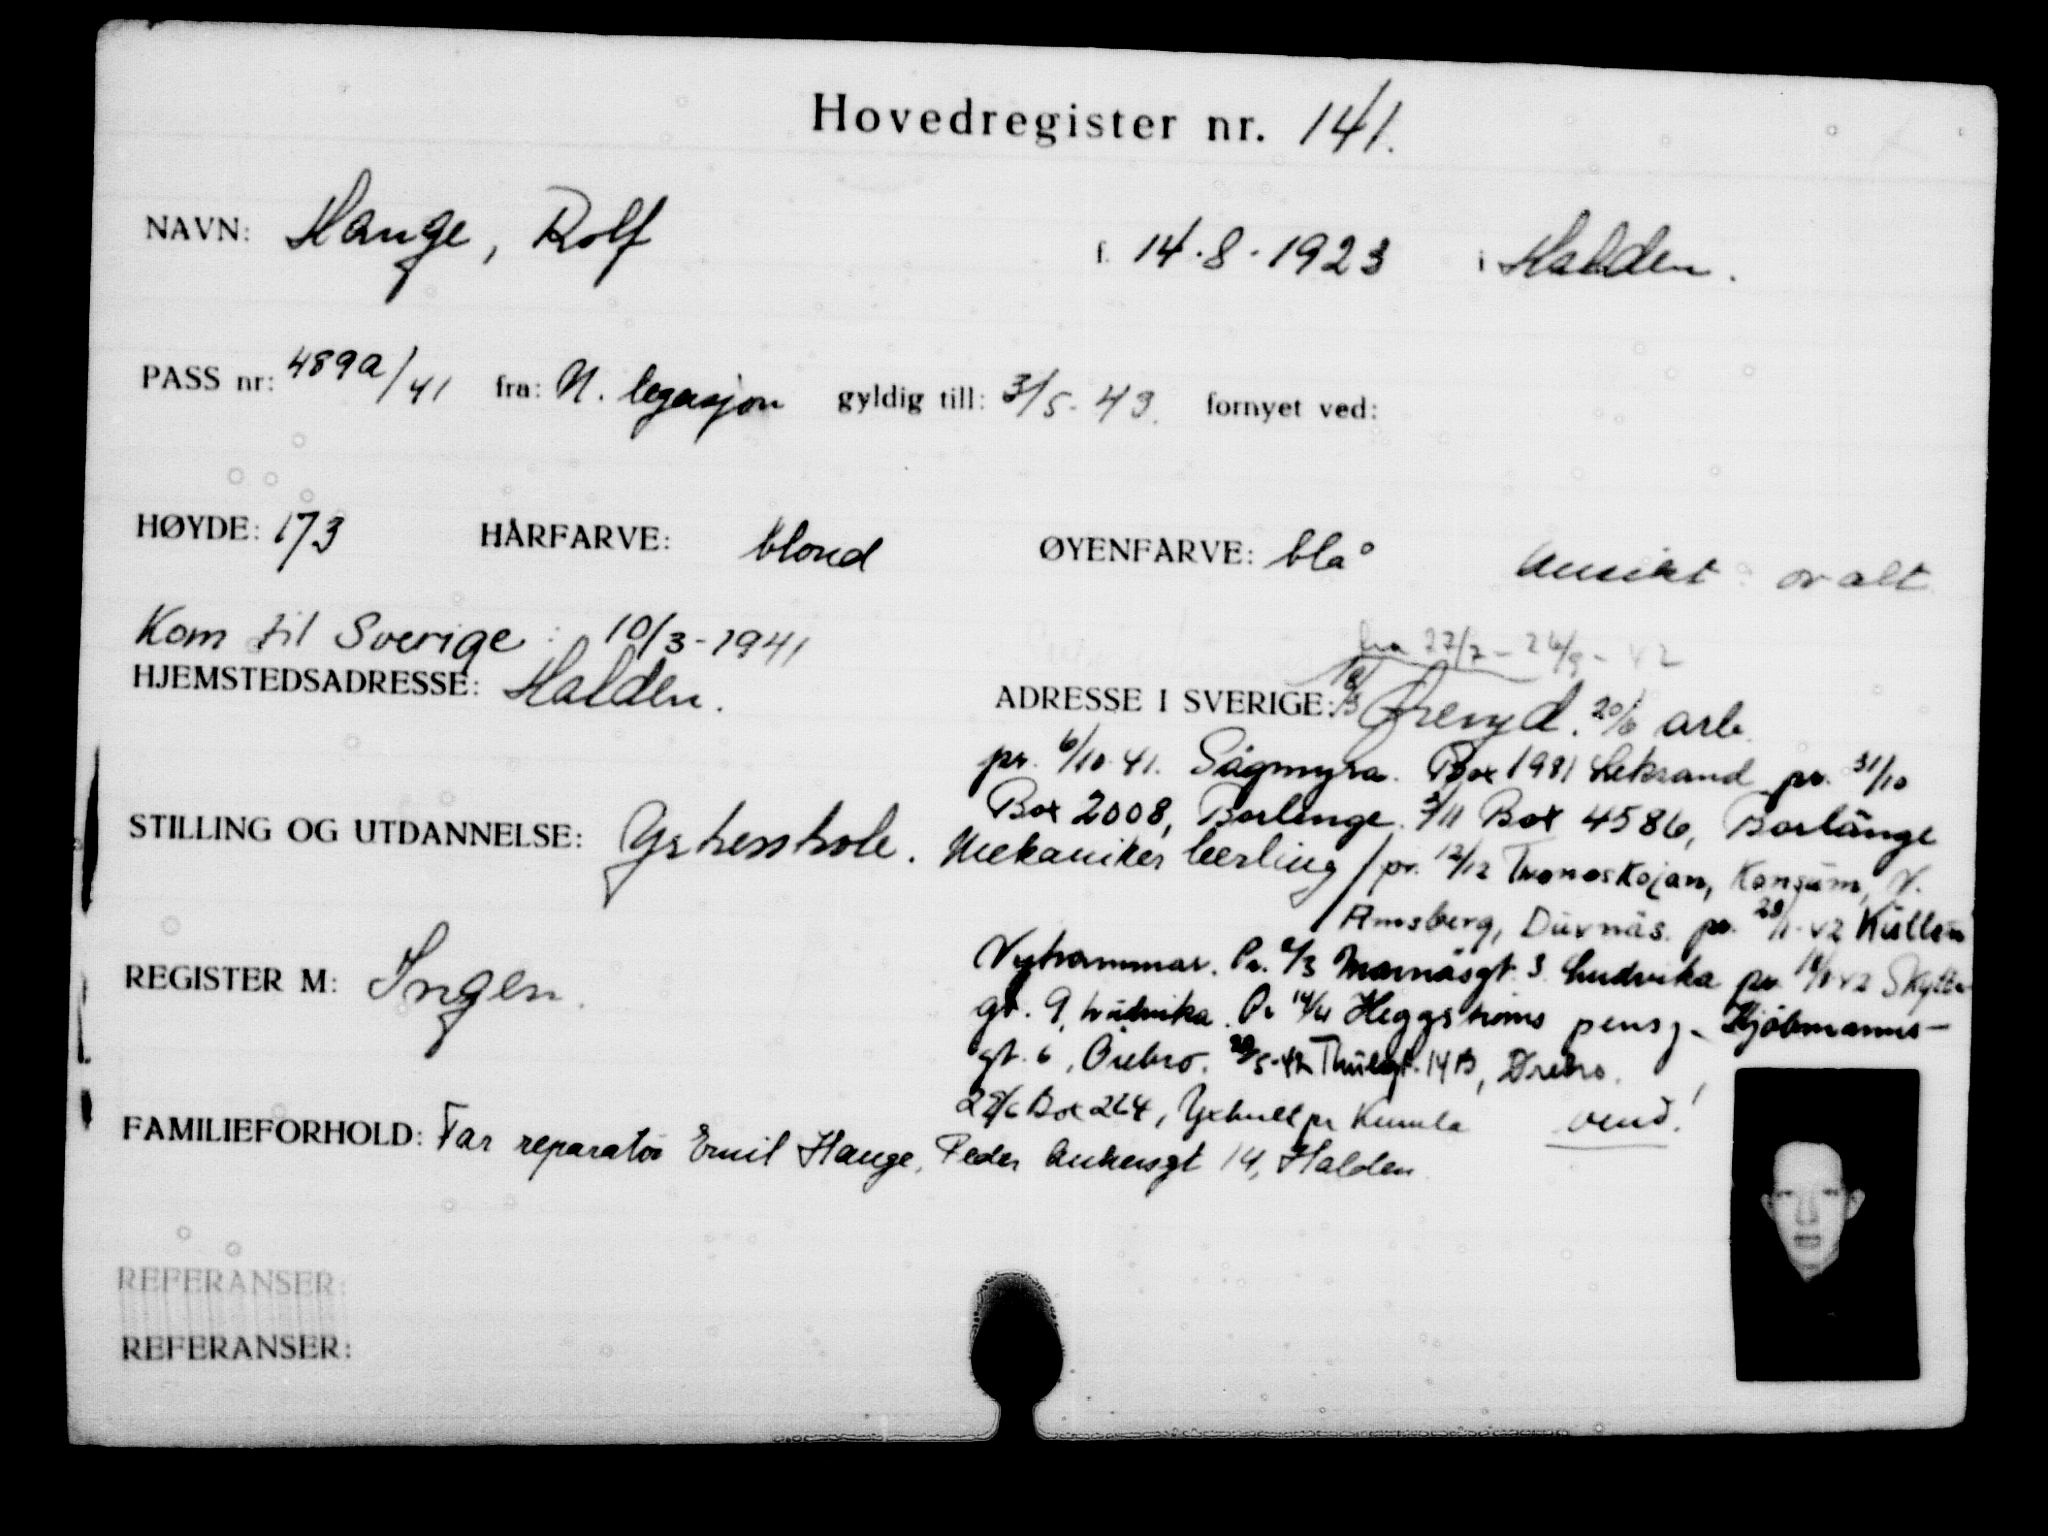 Hovedregister nr. 141.
NAVN: Hauge, Rolf f. 14.8.1923 i Halden.
PASS nr: 489a/41 fra: N. legasjon gyldig till: 3/5-43. fornyet ved:
HØYDE: 173 HÅRFARVE: blond ØYENFARVE: blå Ansikt: ovalt
Kom til Sverige: 10/3-1941
fra 27/7 - 26/9 - 42
HJEMSTEDSADRESSE: Halden.
ADRESSE I SVERIGE: Öreryd. 20/6 arb.
pr. 6/10 41. Sågmyra. Box 1981 Leksand pr. 31/10
Box 2008, Borlänge. 3/11 Box 4586, Borlänge
STILLING OG UTDANNELSE: Yrkesskole. Mekaniker lærling
/pr. 12/12 Konsum, N.
Amsberg, Duvnäs. pr. 28/1-42 Kullen
REGISTER M: Ingen.
Nyhammar. Pr. 2/3 Marnäsgt. 3. Ludvika pr.
gt. 9, Ludvika. Pr 14/4 Heggströms pensj.
gt. 6, Örebro. 20/5-42 Thulegt. 14B, Örebro.
Box 264, Yxhult pr Kumla vend!
FAMILIEFORHOLD: Far reparatør Emil Hauge, Peder Ankersgt 14, Halden.
REFERANSER:
REFERANSER: